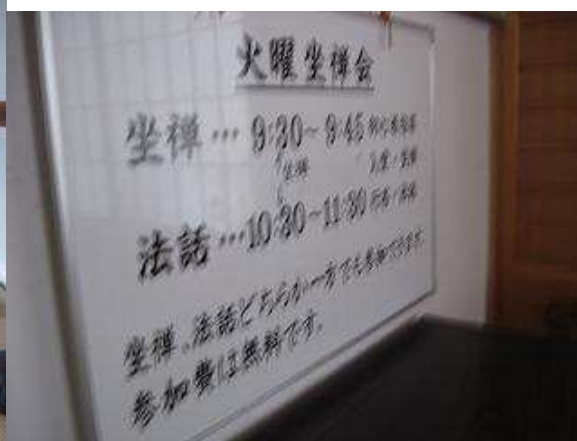 火曜坐禅会
坐禅…9:30~9:45
坐禅
法話…10:30~11:30
坐禅、法話どちらか一方でも参加できます。
参加費は無料です。